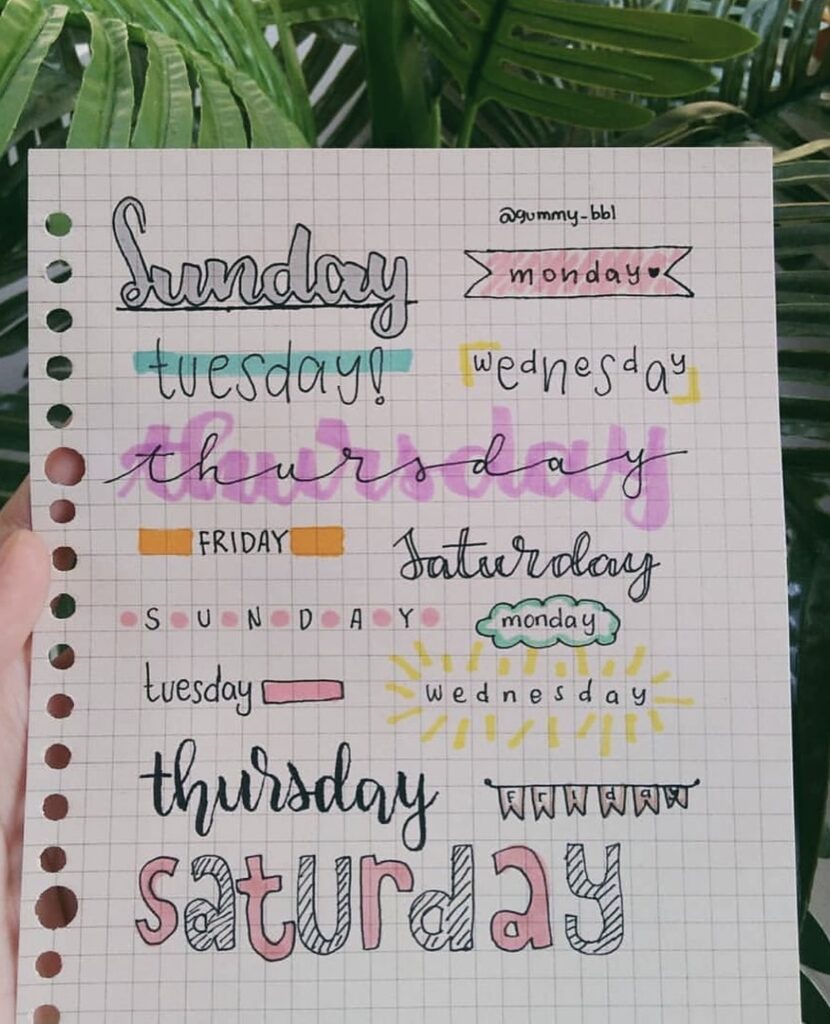 @gummy_bbl
Sunday
monday♥
tuesday!
wednesday
thursday
FRIDAY
Saturday
SUNDAY
monday
tuesday
wednesday
thursday
friday
saturday